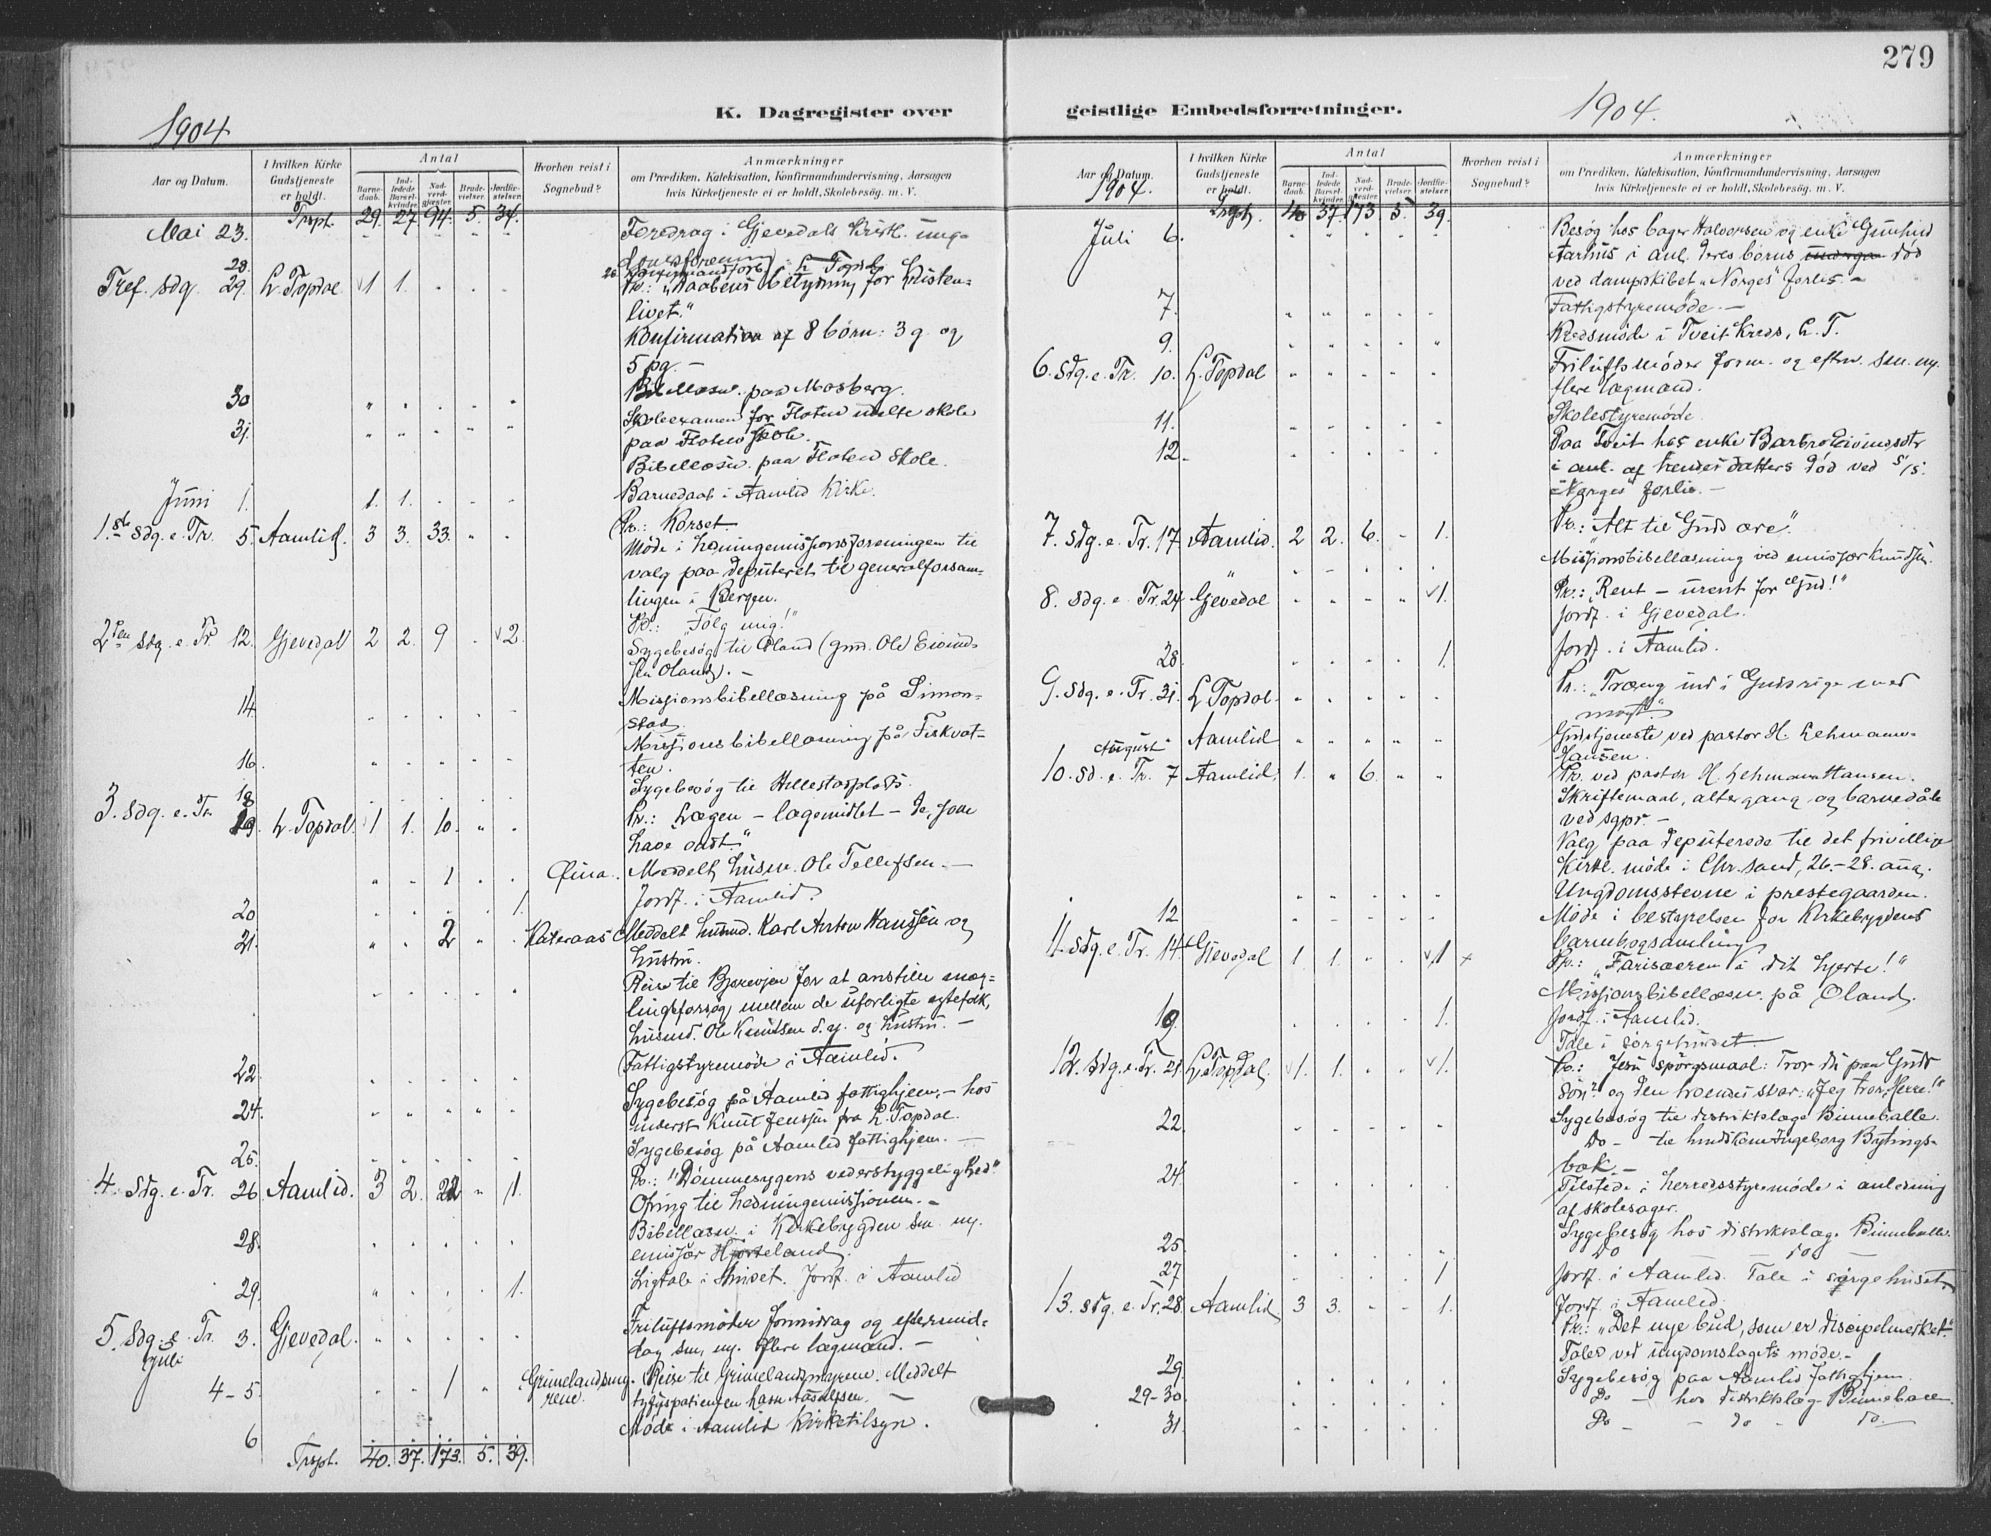 279
K. Dagregister over geistlige Embedsforretninger.
1904
1904.
Aar og Datum.
I hvilken Kirke Gudstjeneste er holdt.
Antal
Barnedaab.
Indledede Barselkvinder.
Nadverdgjæster.
Brudevielser.
Jordfæstelser.
Hvorhen reist i Sognebud?
Anmærkninger
om Prædiken, Katekisation, Konfirmandundervisning, Aarsagen
hvis Kirketjeneste ei er holdt, Skolebesøg, m. V.
Trspt. 29. 27. 94. 5. 34.
Mai 23. Foredrag i Gjevedals kristl. ung-
domsforening
28.
Tref. sdg. 29. H. Topdal 1 1. Pr.: "Daabens betydning for kristen-
livet."
Konfirmation af 8 børn: 3 g. og
5 pg. —
30 Bibellæsn. paa Mosberg.
31. Skoleexamen for Floten skole
paa Floten skole.
Bibellæsn. paa Floten skole.
Juni 1. 1. 1. Barnedaab i Aamlid kirke.
1.ste sdg. e. Tr. 5. Aamlid. 3 3. 33. Pr.: Korset.
Møde i hedningemissionsforeningen til
valg paa deputeret til generalforsam-
lingen i Bergen.
2den sdg. e. Tr. 12. Gjevedal 2 2. 9 2. Pr.: "Følg mig!"
Sygebesøg til Øland (gmd. Ole Eivind-
sen Øland). —
14. Missionsbibellæsning på Simon-
stad.
16. Missionsbibellæsning på Fiskvat-
ten.
18 Sygebesøg til Hillestadplads.
3. sdg. e. Tr. 19. H. Topdal. 1 1. 10. Pr.: Lægen – lægemidlet – de, som
have ondt."
1 Meddelt husm. Ole Tellefsen. —
20 1. Jordf. i Aamlid.
21. 2 Kateraas Meddelt husmd. Karl Anton Hanssen og
hustru.
Reise til for at anstille mæg-
lingsforsøg mellem de uforligte egtefolk,
husmd. Ole Knutsen d.y. og hustru. —
22. Fattigstyremøde i Aamlid.
24. Sygebesøg på Aamlid fattighjem. – hos
inderst Knut Jenssen fra H. Topdal.
25. Sygebesøg på Aamlid fattighjem. —
4. sdg. e. Tr. 26 Aamlid. 3 2. 22 1. Pr.: "Dømmesygens vederstyggelighed."
Ofring til hedningemissionen. —
28. Bibellæsn. i Kirkebygden sm. m.
emissær Hjorteland.
29. 1. Ligtale i huset. Jordf. i Aamlid
5. sdg. e. Tr. Juli 3. Gjevedal. Friluftsmøder formidag og eftermid-
dag sm. m. flere lægmænd. —
4–5. 1 Grimelandsmy-
rene. Reise til Grimelandsmyrene. Meddelt
tyfuspatienten
6 Møde i Aamlid kirketilsyn.
Trspt. 40. 37. 173. 5. 39.
Aar og Datum.
1904.
I hvilken Kirke Gudstjeneste er holdt.
Antal
Barnedaab.
Indledede Barselkvinder.
Nadverdgjæster.
Brudevielser.
Jordfæstelser.
Hvorhen reist i Sognebud?
Anmærkninger
om Prædiken, Katekisation, Konfirmandundervisning, Aarsagen
hvis Kirketjeneste ei er holdt, Skolebesøg, m. V.
Trspt. 40 37. 173 5. 39.
Juli 6. Besøg hos bager Halvorsen og enke Gunhild
Aarhus i anl. deres børns død
ved dampskibet "Norges" forlis. –
7. Fattigstyremøde. —
9. Kredsmøde i Tveit kreds, H. T.
6. sdg. e. Tr. 10. H. Topdal Friluftsmøder form. og efterm. sm. m.
flere lægmænd.
11. Skolestyremøde.
12. Paa Tveit hos enke Barbro Eivindsdtr
i anl. af hendes datters død ved S/S.
"Norges" forlis. —
7. sdg. e. Tr. 17 Aamlid. 2 2. 6. 1. Pr.: "Alt til Guds ære".
Missionsbibellæsning ved emissær Knudsen.
8. sdg. e. Tr. 24 Gjevedal 1. Pr.: "Rent – urent for Gud!"
Jordf. i Gjevedal.
28. 1. Jordf. i Aamlid.
9. sdg. e. Tr. 31. H. Topdal. Pr.: "Træng ind i Guds rige med
magt."
Aamlid Gudstjeneste ved pastor H. Lehmann-
Hansen.
August
10. sd. e. Tr. 7 Aamlid. 1. 6. Pr. ved pastor H. Lehmann Hansen.
Skriftemaal, altergang og barnedåb
ved sgpr. —
Valg paa deputerede til det frivillige
kirkl. møde i Chr.sand, 26.–28. aug.
Ungdomsstevne i prestegaarden.
12 Møde i bestyrelsen for Kirkebygdens
barnebogsamling
11. sdg. e. Tr. 14. Gjevedal 1. 1. 1 Pr.: "Farisæeren i dit hjerte!"
Missionsbibellæsn. på Øland.
19. 1. Jordf. i Aamlid.
Tale i sørgehuset.
12. sdg. e. Tr. 21. H. Topdal. 1. 1. 1. Pr.: Jesu spørgsmaal: Tror du paa Guds
søn? og den troendes svar: "Jeg tror, Herre!"
22. Sygebesøg til distriktslæge Binneballe.
Do – til Ingeborg Bytings-
bak. –
24. Tilstede i herredsstyremøde i anledning
af skolesager.
25. Sygebesøg hos distriktslæge Binneballe.
Do do
27 1 Jordf. i Aamlid. Tale i sørgehuset
13. sdg. e. Tr. 28. Aamlid 3 3. 1. Jordf. i Aamlid.
Pr.: "Det nye bud, som er discipelmerket."
Taled ved ungdomslagets møde. –
29 Sygebesøg paa Aamlid fattighjem.
29–30. Do – hos distriktslæge Binneballe.
31. Do – do – do –